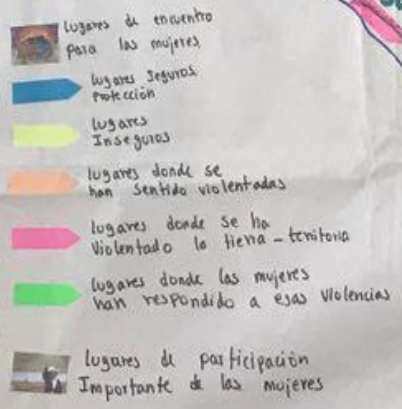 lugares de encuentro
para las mujeres
lugares seguros
Protección
lugares
Inseguros
lugares donde se
han sentido violentadas
lugares donde se ha
violentado la tierra - territorio
lugares donde las mujeres
han respondido a esas violencias
lugares de participación
Importante de las mujeres